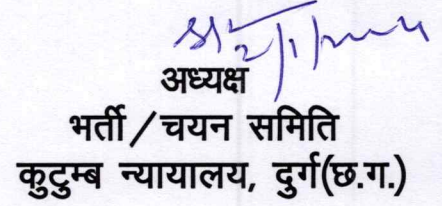 अध्यक्ष
भर्ती/चयन समिति
कुटुम्ब न्यायालय, दुर्ग(छ.ग.)